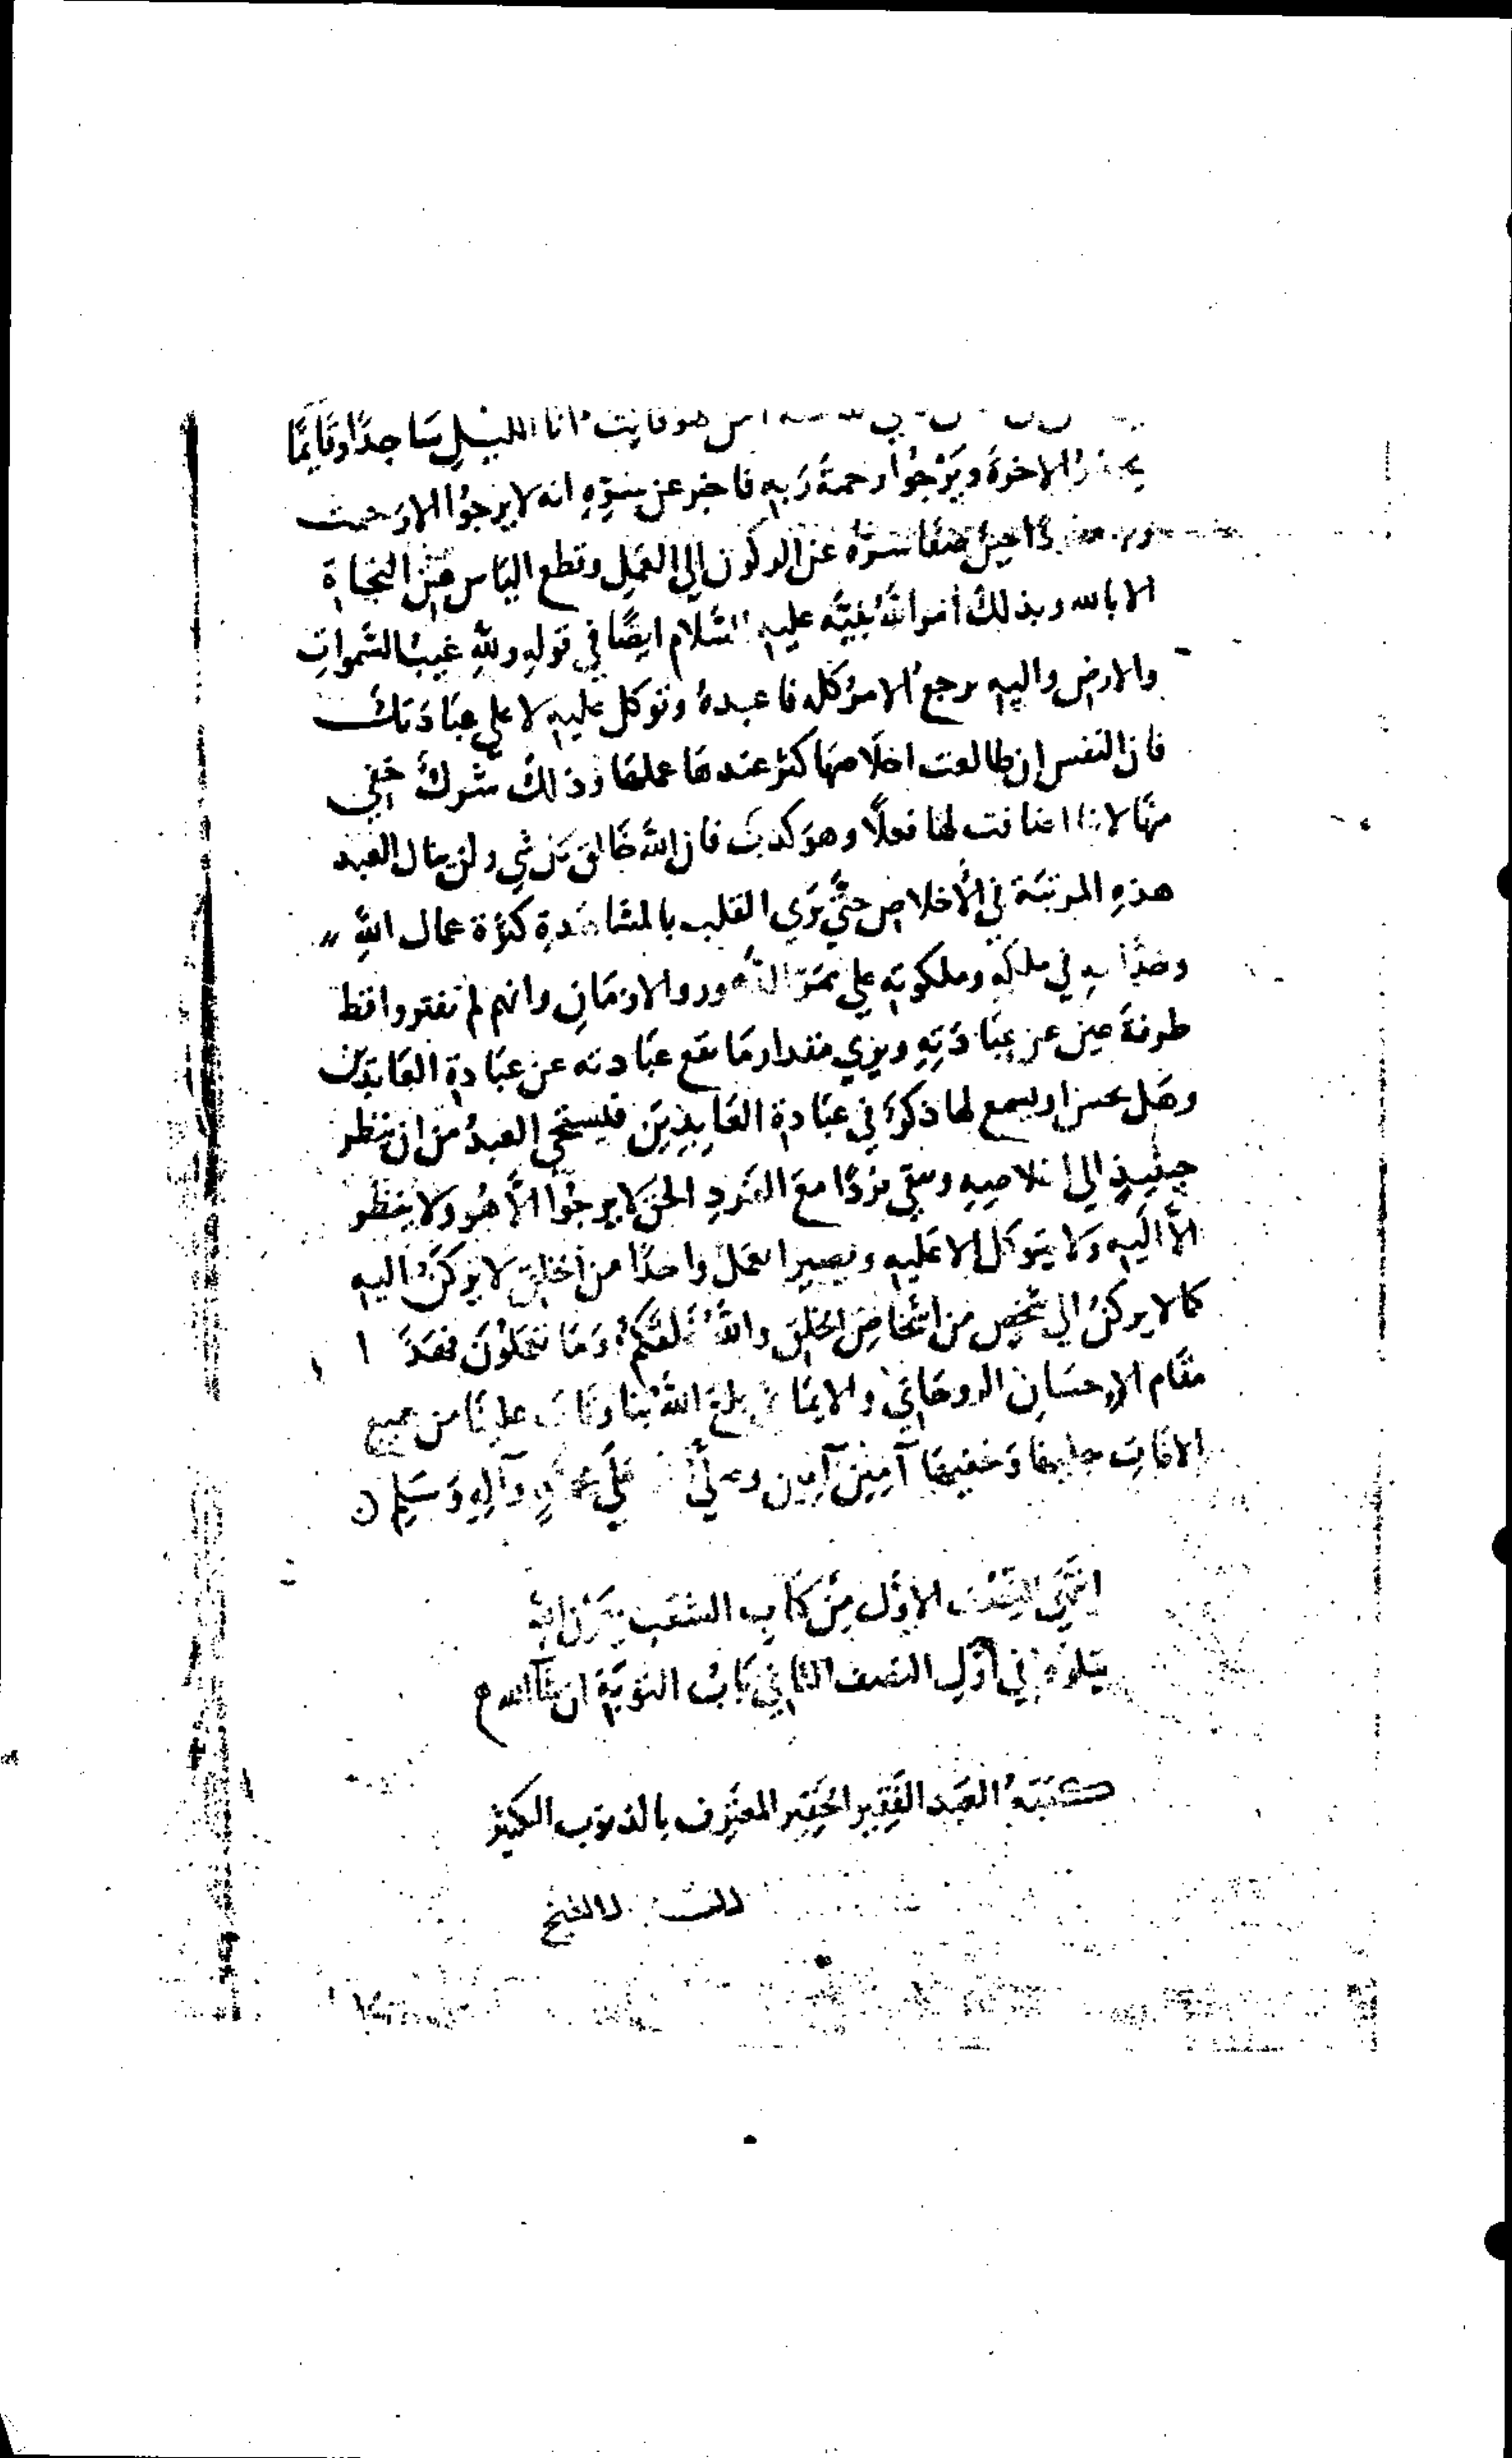 هو قانت انا الليل ساجدًا وقايمًا
يحذر الاخرة ويرجوا رحمة ربه فاخبر عن سره انه لا يرجوا الا رحمت
صفا سره عن الركون الي العمل وقطع الياس من النجاة
الا بالله وبذلك امر الله نبيه عليه السلام ايضًا في قوله ولله غيب السموات
والارض واليه يرجع الامر كله فاعبده وتوكل عليه لا علي عبادتك
فان النفس ان طالعت اخلاصها كثر عندها عملها وذلك شرك خفي
منها لانها اضافت لها فعلًا وهو كذب فان الله خالق كل شي ولن ينال العبد
هذه المرتبة في الاخلاص حتي يري القلب بالمشاهدة كثرة عمال الله
في ملكه وملكوته علي ممر الدهور والازمان وانهم لم يفتروا قط
طرفة عين عن عبادته ويري مقدار ما تقع عبادته عن عبادة العابدين
وهل يحس او يسمع لها ذكر في عبادة العابدين فيستحي العبد من ان ينظر
حينيذ الي اخلاصه ويبقي فردًا مع الفرد الحق لا يرجوا الا هو ولا ينظر
الا اليه ولا يتوكل الا عليه ويصير العمل واحدًا من الخلق لا يركن اليه
كما لا يركن الي شخص من اشخاص الخلق والله خلقكم وما تعملون فهذا
مقام الاحسان الروحاني والايماني بلغ الله بنا وتاب علينا من جميع
الافات جليها وخفيها آمين آمين وصلي علي محمد وآله وسلم
انتهي النصف الاول من كتاب الشعب بعون الله
يتلوه في اول النصف الثاني كتاب التوبة ان شآ الله
كتبه العبد الفقير الحقير المعترف بالذنوب الكثير
الشيخ